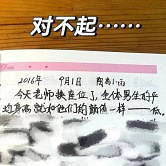 对不起……
2016年 9月1日 周四 小雨
今天老师换座位了,全体男生的平
均身高就和他们的颜值一样——低。